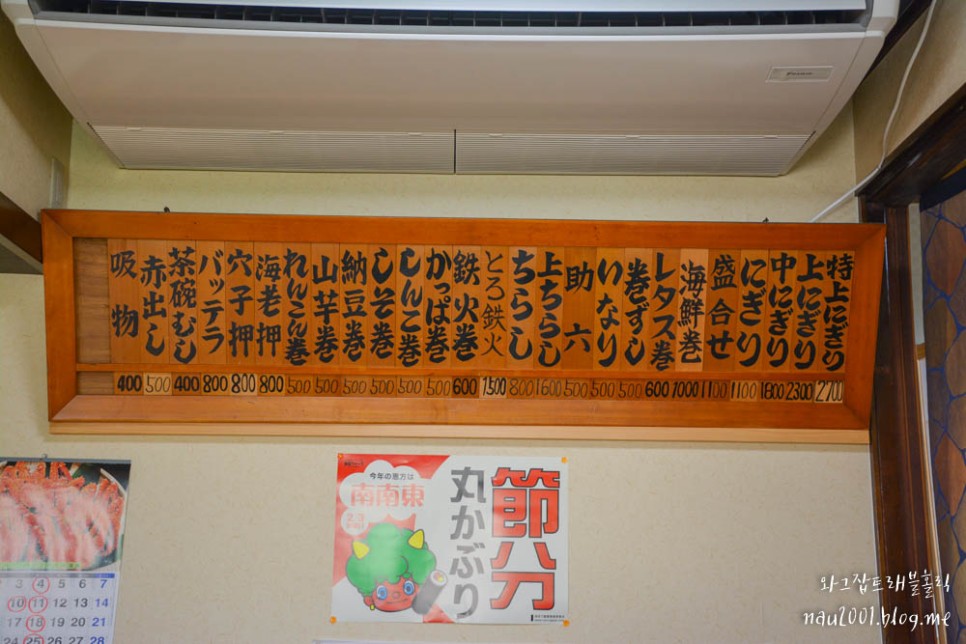 特上にぎり 2700
上にぎり 2300
中にぎり 1800
にぎり 1100
盛合せ 1100
海鮮巻 1000
レタス巻 600
巻ずし 500
いなり 500
助六 500
上ちらし 1600
ちらし 800
とろ鉄火 1500
鉄火巻 600
かっぱ巻 500
しんこ巻 500
しそ巻 500
納豆巻 500
山芋巻 500
れんこん巻 500
海老押 800
穴子押 800
バッテラ 800
茶碗むし 400
赤出し 500
吸物 400
節分
丸かぶり
今年の恵方は
南南東
3 4 5 6 7
10 11 12 13 14
17 18 19 20 21
24 25 26 27 28
와그잡트래블홀릭
nau2001.blog.me